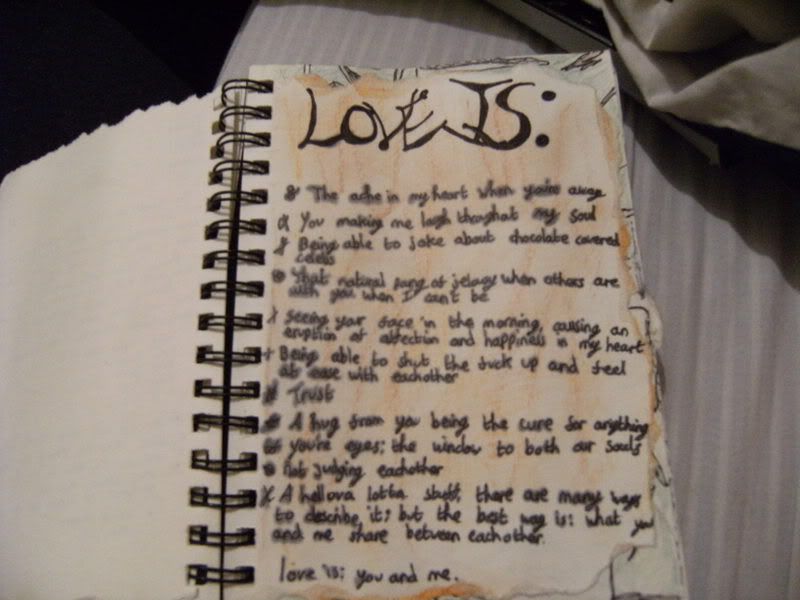 LOVE IS:
The ache in my heart when you're away
You making me laugh throughat my soul
Being able to joke about chocolate covered
celebs
That natural pang of jelousy when others are
with you when I can't be
Seeing your face in the morning, causing an
eruption of affection and happiness in my heart
Being able to shut the fuck up and feel
at ease with eachother
Trust
A hug from you being the cure for anything
you're eyes; the window to both our souls
not judging eachother
A hellova lotta stuff, there are many ways
to describe it; but the best way is: what you
and me share between eachother.
love is: you and me.